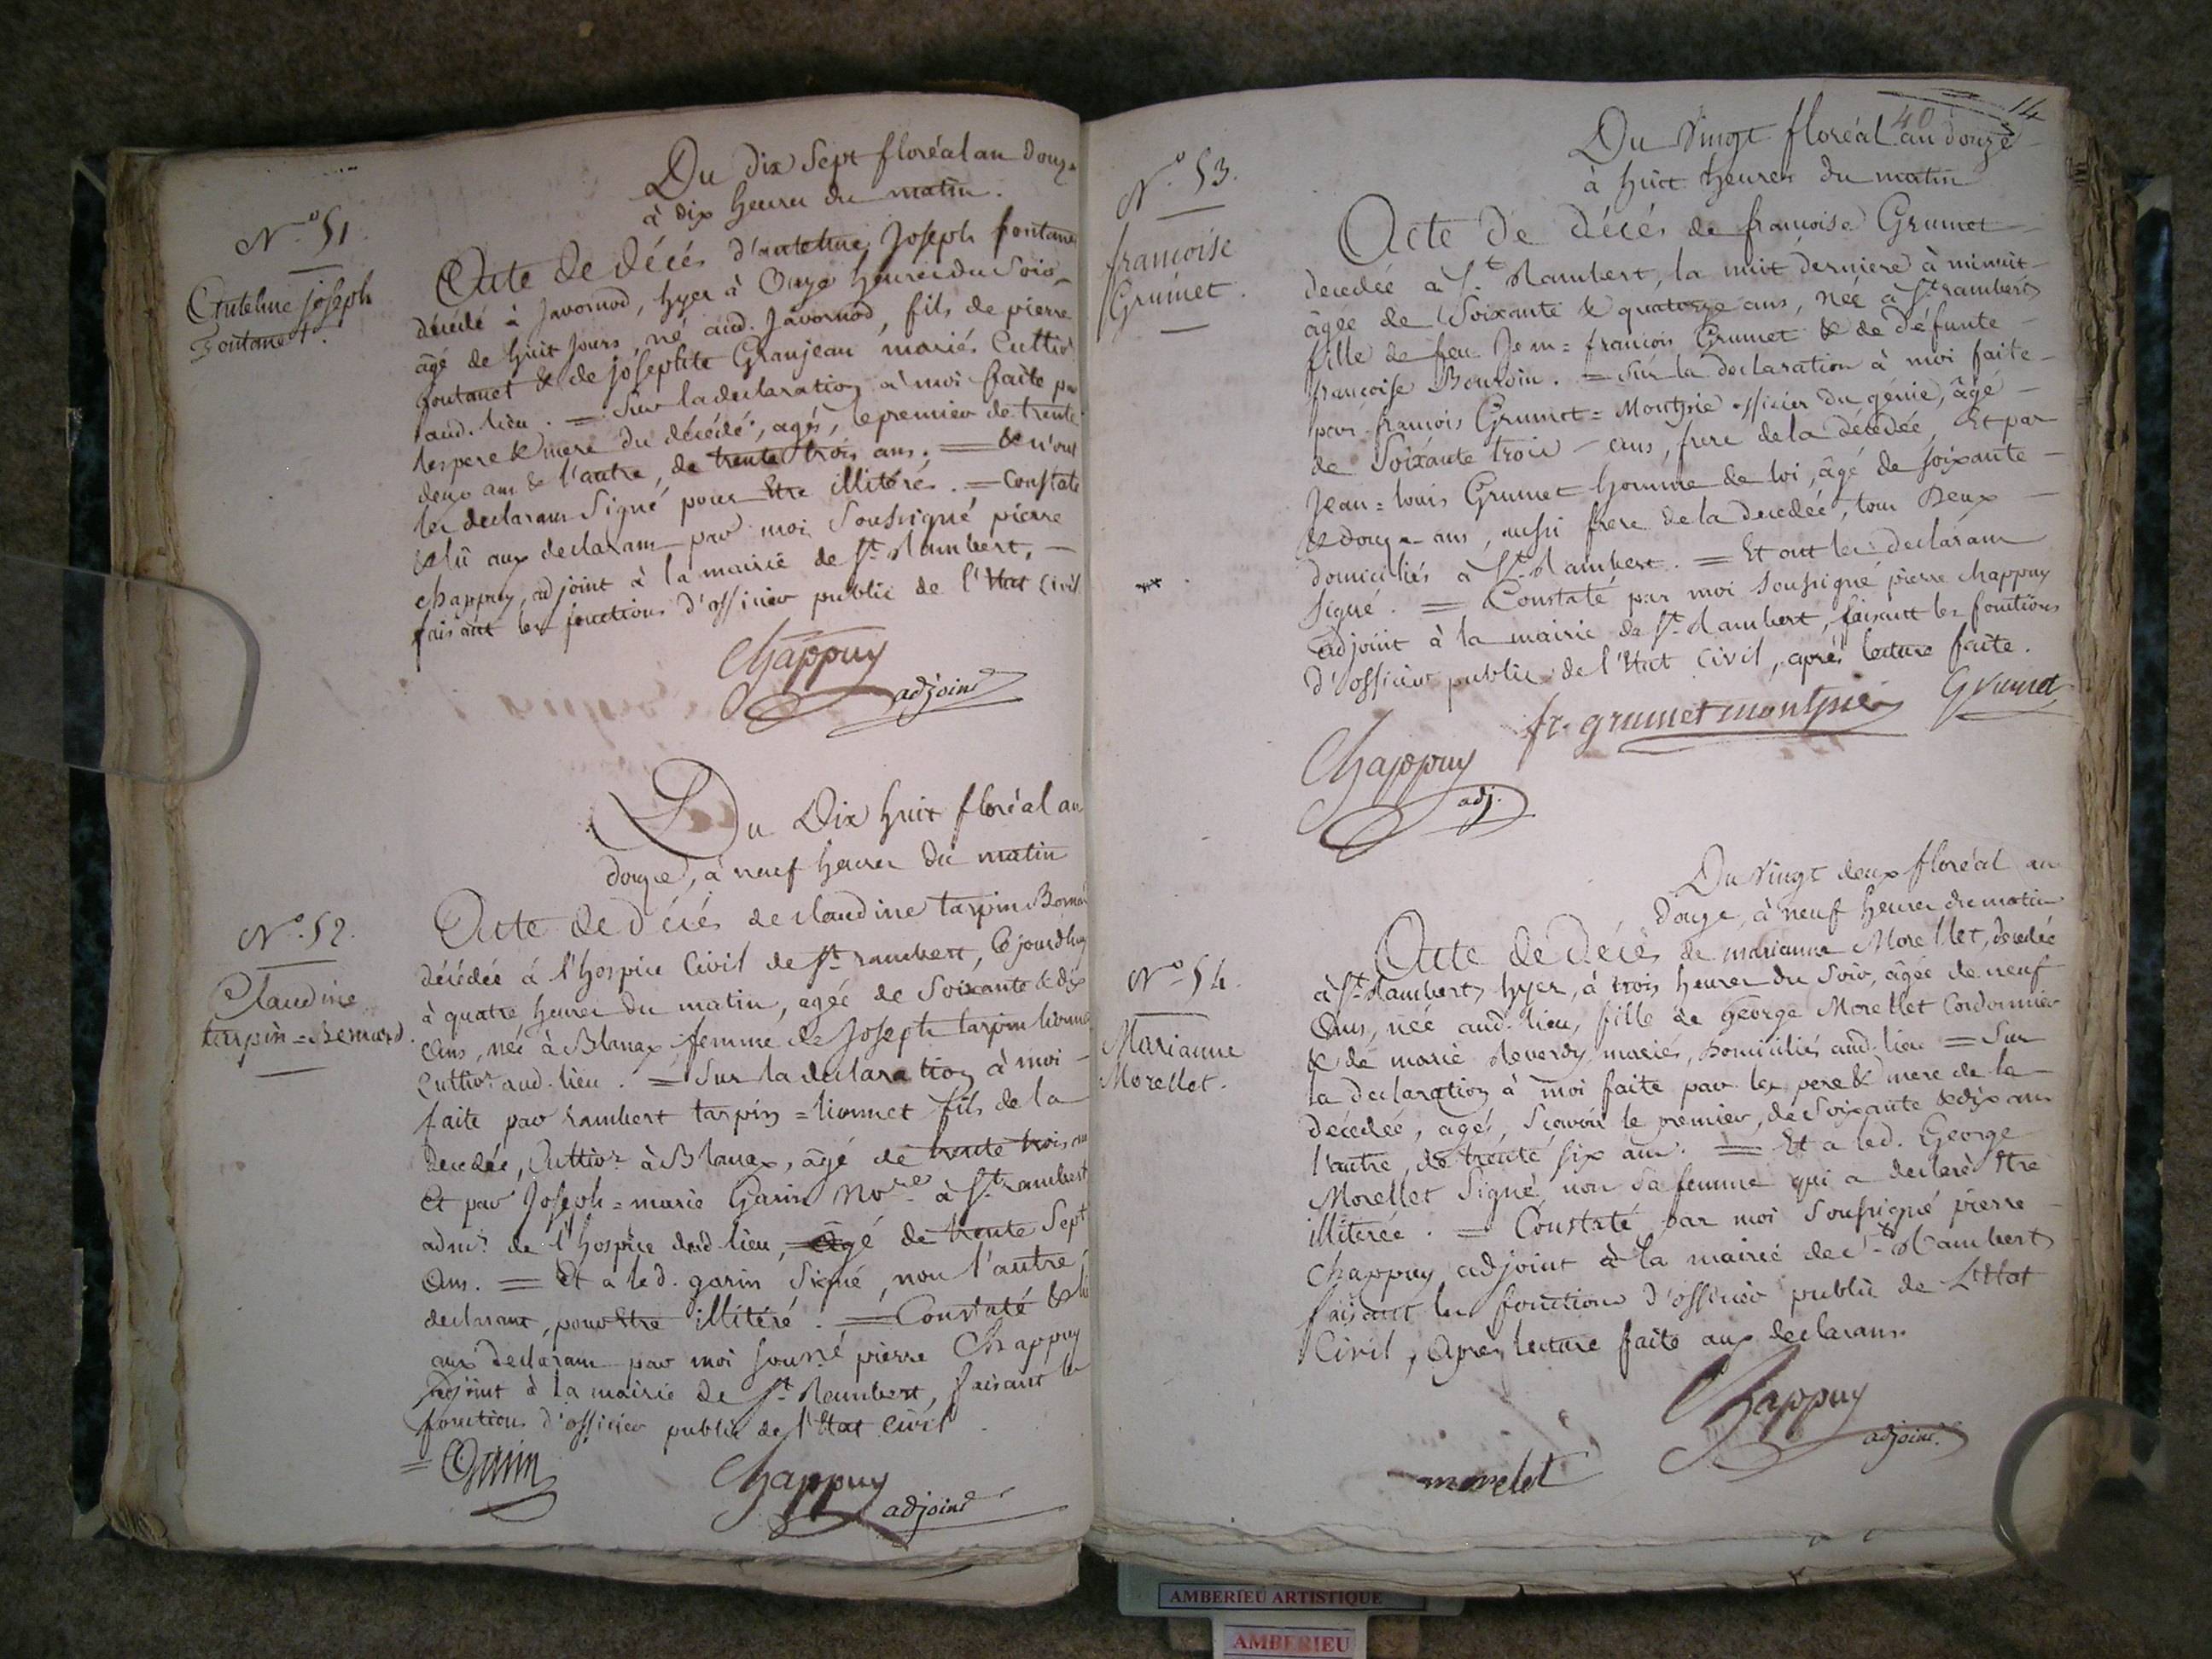 N.° 51.
Anteline joseph
Fontanet.
Du dix Sept floréal an douze
à dix heures du matin.
Acte de décés d'anteline Joseph fontanet
décédé à Javornod, hyer à Onze heures du Soir,
âgé de huit Jours, né aud. Javornod, fils de pierre
fontanet & de josephte Granjean mariés Cultivrs
aud. lieu. = Sur la declaration à moi faite par
les pere & mere du décédé, agés, le premier de trente
deux ans & l'autre, de trente trois ans. = & n'ont
les declarans Signé pour Etre illitérés. = Constaté
& lû aux declarans par moi Soussigné pierre
chappuy, adjoint à la mairie de St. Rambert, —
faisant les fonctions d'officier public de l'Etat Civil
Chappuy
adjoint
N.° 52.
Claudine
tarpin = Bernard.
Du Dix huit floréal an
douze, à neuf heures du matin
Acte de décés de claudine tarpin Bernard
décédée à l'hospice Civil de St. rambert, Cejourd'huy
à quatre heures du matin, agée de Soixante & dix
Ans, née à Blanax, femme de Joseph tarpin lionnet
Cultivr. aud. lieu. = Sur la declaration à moi —
faite par rambert tarpin = lionnet fils de la
decedée, Cultivr. à Blanax, âgé de trente trois ans
Et par Joseph = marie Garin Nore. à St. rambert
admr. de l'hospice dud. lieu, âgé de trente Sept
Ans. = Et a led. garin Signé, non l'autre
declarant, pour Etre illitéré. = Constaté & lû
aux declarans par moi sousné. pierre Chappuy
adjoint à la mairie de St. Rambert, faisant les
fonctions d'officier public de l'Etat Civil.
= Garin
Chappuy
adjoint
14
40
N.° 53.
francoise
Grumet.
Du Vingt floréal an douze
à huit heures du matin
Acte de décés de francoise Grumet
decedée à St. Rambert, la nuit derniere à minuit —
âgée de Soixante & quatorze ans, née à St. rambert
fille de feu Jean = francois Grumet & de défunte —
francoise Bourdin. = Sur la declaration à moi faite —
par francois Grumet = Montpié officier du génie, âgé —
de Soixante trois — ans, frere de la décédée, Et par
Jean = louis Grumet homme de loi, âgé de soixante —
& douze ans, aussi frere de la decedée, tous Deux —
domiciliés à St. Rambert. = Et ont les declarans
signé. = Constaté par moi soussigné pierre chappuy
adjoint à la mairie de St. Rambert, faisant les fonctions
d'officier public de l'Etat Civil, aprés lecture faite.
fr. grumet montpié
Grumet
Chappuy
adj.
N.° 54.
Marianne
Morellet.
Du Vingt deux floréal an
douze, à neuf heures du matin
Acte de décés de marianne Morellet, decedée
à St. Rambert, hyer, à trois heures du Soir, âgée de neuf
Ans, née aud. lieu, fille de George Morellet Cordonnier
& de marie Reverdy mariés, domiciliés aud. lieu = Sur
la declaration à moi faite par les pere & mere de la
décédée, agés, Scavoir le premier, de Soixante & dix ans
l'autre, de trente six ans. = Et a led. George
Morellet Signé, non Sa femme qui a declaré Etre
illiterée. = Constaté par moi Soussigné pierre —
Chappuy adjoint à la mairie de St. Rambert
faisant les fonctions d'officier public de L'Etat
Civil, Aprés lecture faite aux declarans.
Chappuy
adjoint.
morelet
AMBERIEU ARTISTIQUE
AMBERIEU